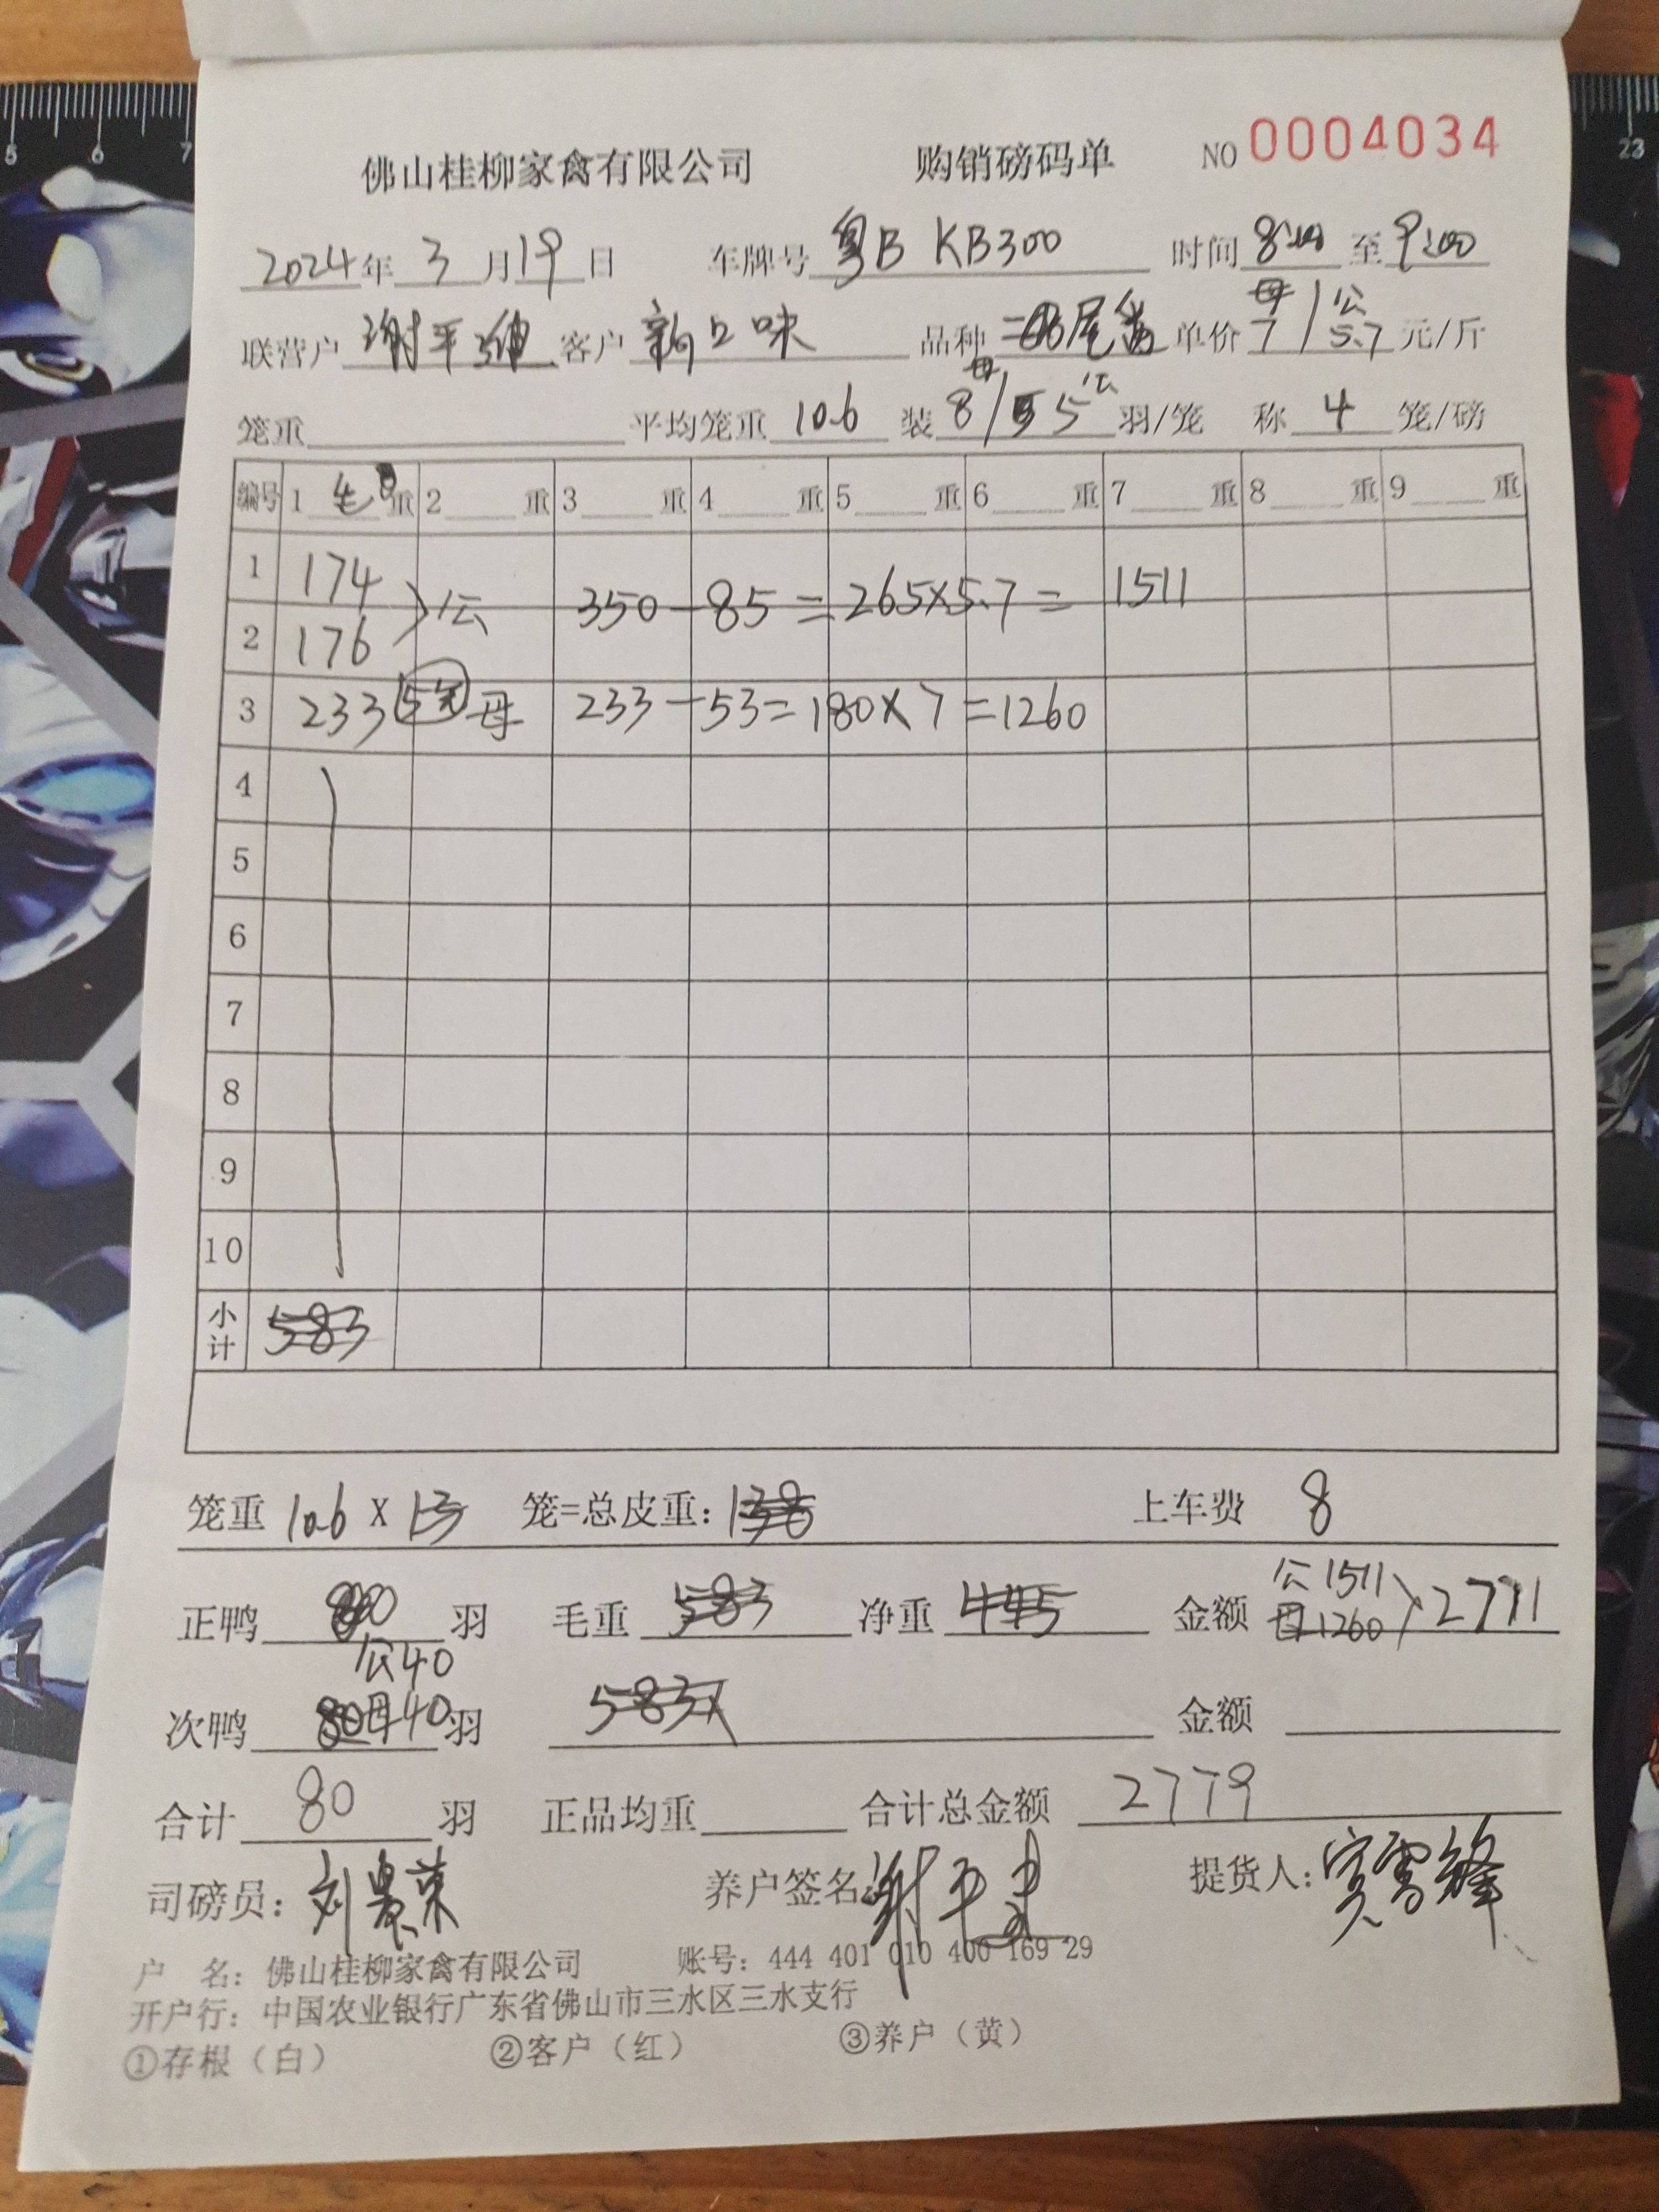 佛山桂柳家禽有限公司 购销磅码单 NO 0004034
2024年 3 月 19 日 车牌号 粤B KB300 时间 8:00 至 9:00
母 / 公
联营户 谢平 客户 新口味 品种 单价 7 / 5.7 元/斤
笼重 平均笼重 10.6 装 母 8 / 5 公 羽/笼 称 4 笼/磅
编号 1 重 2 重 3 重 4 重 5 重 6 重 7 重 8 重 9 重
1 174
公 350-85=265×5.7=1511
2 176
3 233 5笼 母 233-53=180×7=1260
4
5
6
7
8
9
10
小计 583
笼重 10.6 X 13 笼=总皮重: 138 上车费 8
正鸭 羽 毛重 583 净重 445 金额 公1511 母1260 2771
公40
次鸭 80 母40 羽 583X 金额
合计 80 羽 正品均重 合计总金额 2779
司磅员: 刘 荣 养户签名: 谢平 提货人: 雪锋
户 名: 佛山桂柳家禽有限公司 账号: 444 401 010 400 169 29
开户行: 中国农业银行广东省佛山市三水区三水支行
①存根(白) ②客户(红) ③养户(黄)
5 6 7 23